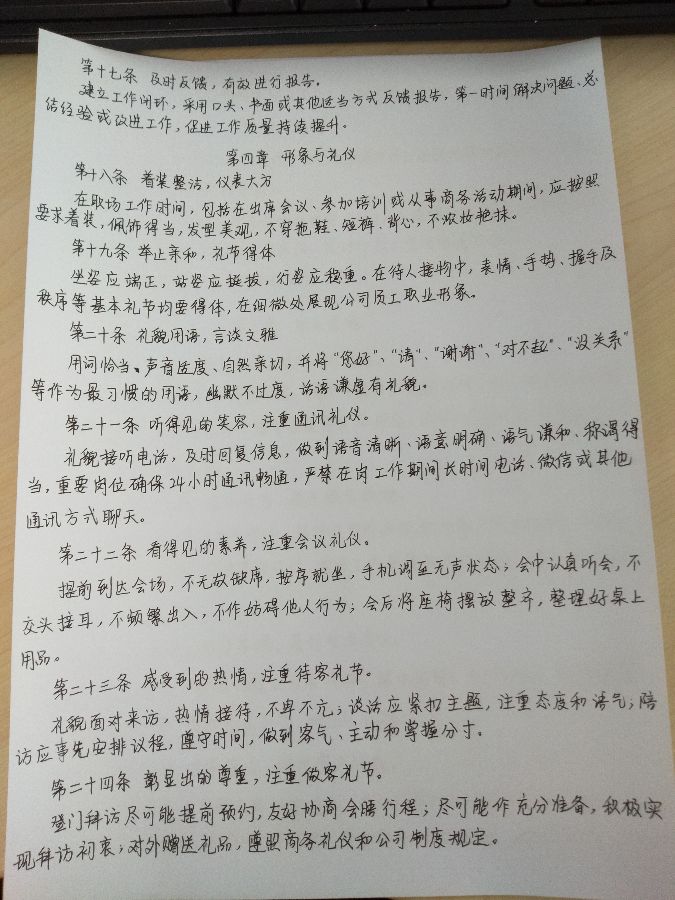 第十七条 及时反馈，有效进行报告。
建立工作闭环，采用口头、书面或其他适当方式反馈报告，第一时间解决问题、总
结经验或改进工作，促进工作质量持续提升。
第四章 形象与礼仪
第十八条 着装整洁，仪表大方
在职场工作时间，包括在出席会议、参加培训或从事商务活动期间，应按照
要求着装，佩饰得当，发型美观，不穿拖鞋、短裤、背心，不浓妆艳抹。
第十九条 举止亲和，礼节得体
坐姿应端正，站姿应挺拔，行姿应稳重。在待人接物中，表情、手势、握手及
秩序等基本礼节均要得体，在细微处展现公司员工职业形象。
第二十条 礼貌用语，言谈文雅
用词恰当、声音适度、自然亲切，并将“您好”、“请”、“谢谢”、“对不起”、“没关系”
等作为最习惯的用语，幽默不过度，话语谦虚有礼貌。
第二十一条 听得见的笑容，注重通讯礼仪。
礼貌接听电话，及时回复信息，做到语音清晰、语意明确、语气谦和、称谓得
当，重要岗位确保24小时通讯畅通，严禁在岗工作期间长时间电话、微信或其他
通讯方式聊天。
第二十二条 看得见的素养，注重会议礼仪。
提前到达会场，不无故缺席，按序就坐，手机调至无声状态；会中认真听会，不
交头接耳，不频繁出入，不作妨碍他人行为；会后将座椅摆放整齐，整理好桌上
用品。
第二十三条 感受到的热情，注重待客礼节。
礼貌面对来访，热情接待，不卑不亢；谈话应紧扣主题，注重态度和语气；陪
访应事先安排议程，遵守时间，做到客气、主动和掌握分寸。
第二十四条 彰显出的尊重，注重做客礼节。
登门拜访尽可能提前预约，友好协商会晤行程；尽可能作充分准备，积极实
现拜访初衷；对外赠送礼品，遵照商务礼仪和公司制度规定。